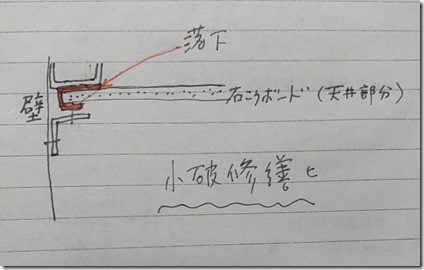 落下
石こうボード(天井部分)
壁
小破修繕と